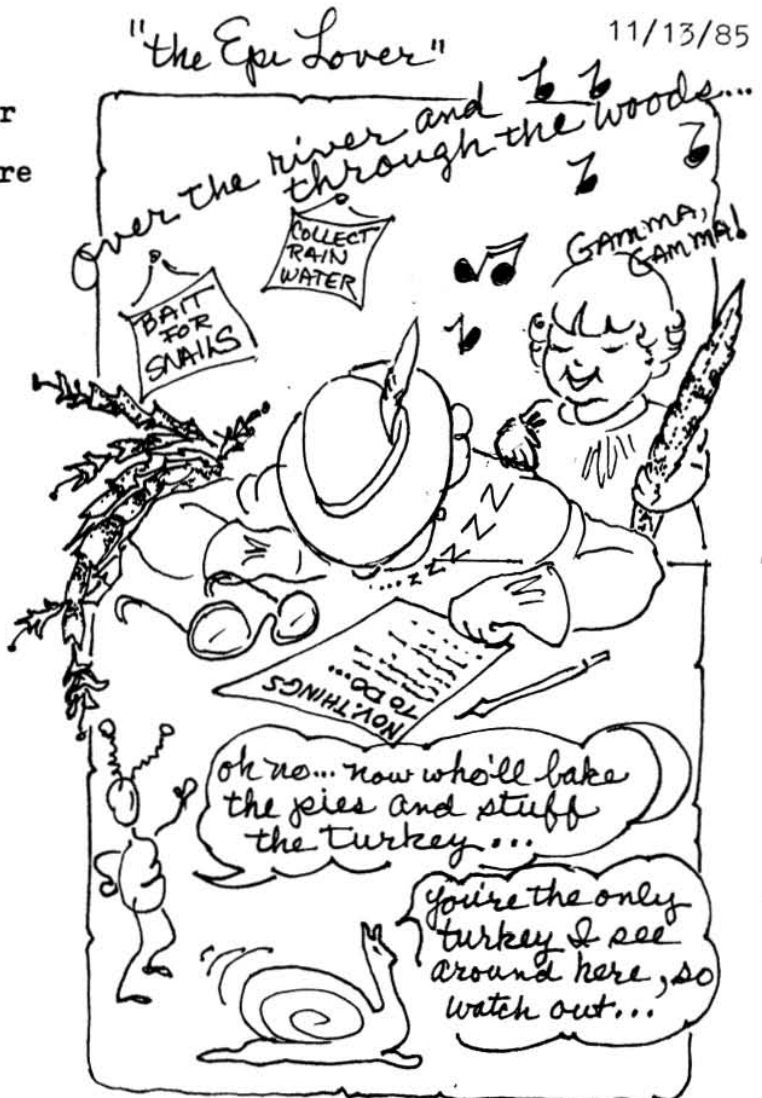 "the Epi Lover"
11/13/85
r
re
over the river and
through the woods...
COLLECT
RAIN
WATER
GAMMA,
GAMMA!
BAIT
FOR
SNAILS
....zzzzZZZZ
NOV. THINGS
TO DO...
oh no... now who'll bake
the pies and stuff
the turkey...
you're the only
turkey I see
around here, so
watch out...